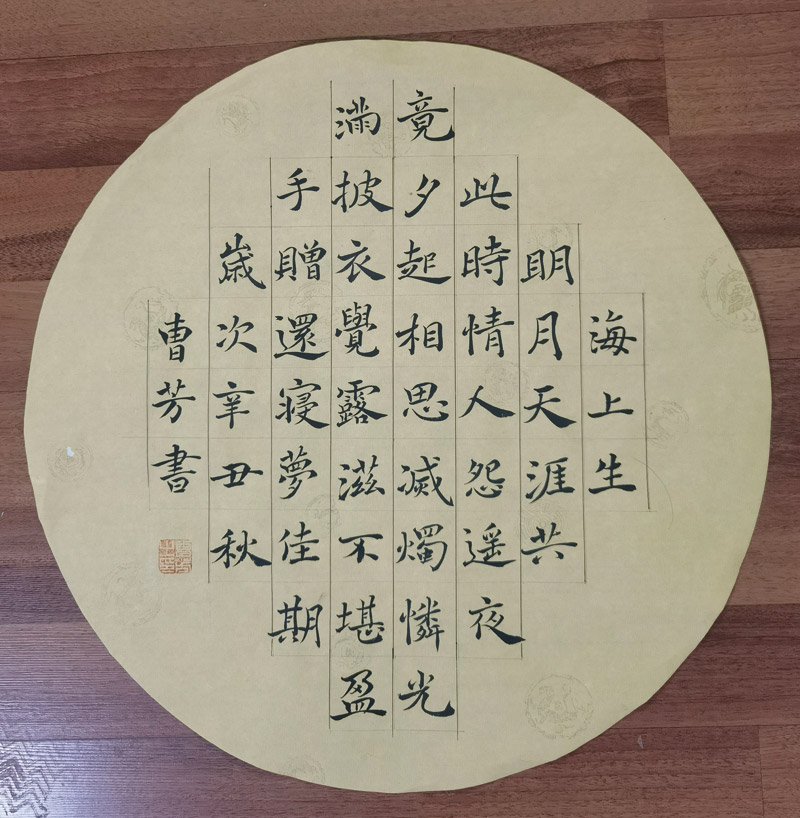 海上生
明月天涯共
此時情人怨遥夜
竟夕起相思滅燭憐光
滿披衣覺露滋不堪盈
手贈還寢夢佳期
歲次辛丑秋
曹芳書